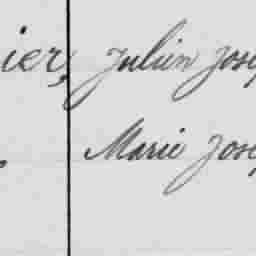 ier, Julien Jose
Marie Jose